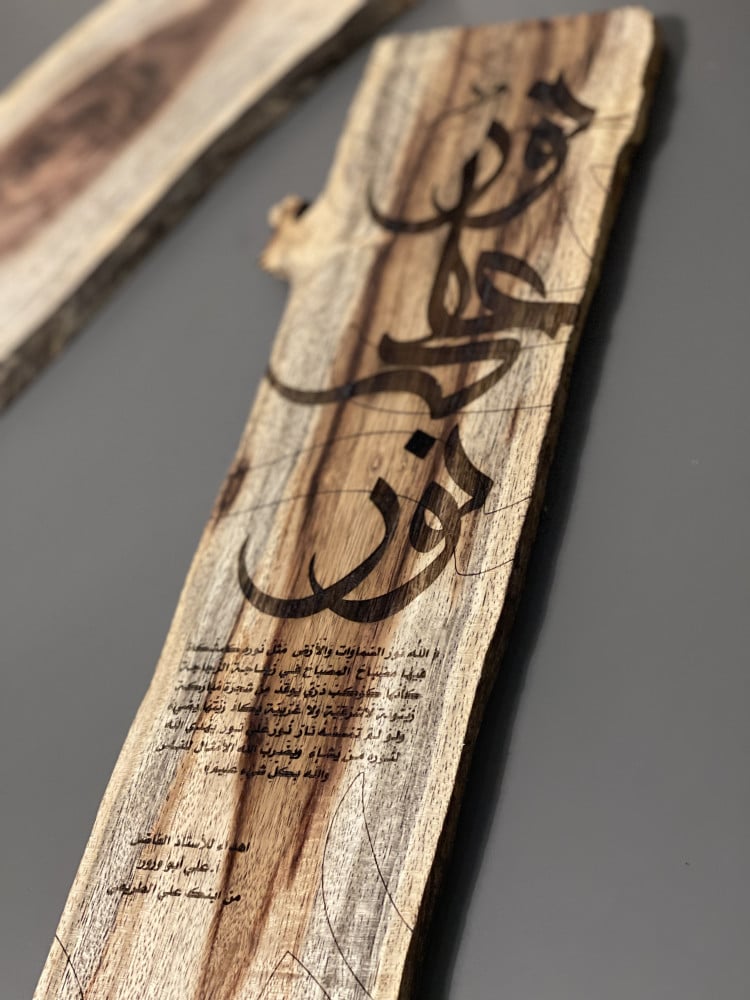 نور
على
نور
﴿ الله نور السماوات والأرض مثل نوره كمشكاة
فيها مصباح المصباح في زجاجة الزجاجة
كأنها كوكب دري يوقد من شجرة مباركة
زيتونة لا شرقية ولا غربية يكاد زيتها يضيء
ولو لم تمسسه نار نور على نور يهدي الله
لنوره من يشاء ويضرب الله الأمثال للناس
والله بكل شيء عليم ﴾
اهداء للأستاذ الفاضل
أ. علي أبو ورور
من ابنك علي الطريحي